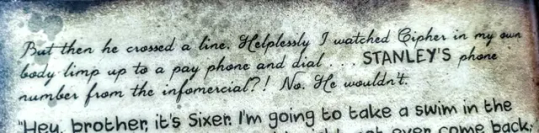 But then he crossed a line. Helplessly I watched Cipher in my own
body limp up to a pay phone and dial . . . STANLEY'S phone
number from the infomercial?! No. He wouldn't.
"Hey, brother, it's Sixer. I'm going to take a swim in the
not even come back;